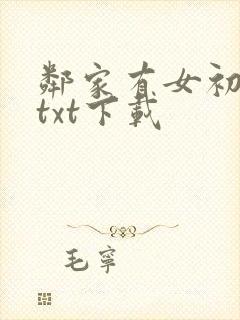 鄰家有女初
txt下載
毛寧